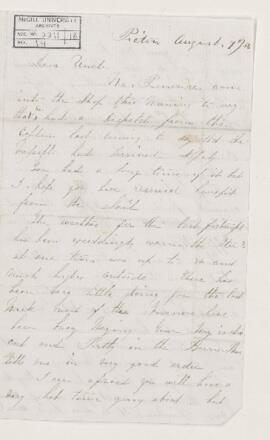 McGILL UNIVERSITY
ARCHIVES
ACC. NO. 2211 | 18
REF. 4
Pictou August 19th
Dear Uncle
Mr Primrose came
into the Shop this morning to say
that had a Despatch from the
Captain last evening to say that the
had arrived safely
You had a long time of it but
I hope you have received benefit
from the Sail
The weather for the last fortnight
has been exceedingly warm the
at one time was up to 90 and
much higher outside There has
been very little doing for the last
week most of the Farmers have
been busy Haying
cut and in the Barn
tells me in very good order
I am afraid you will have a
very hot time going about but